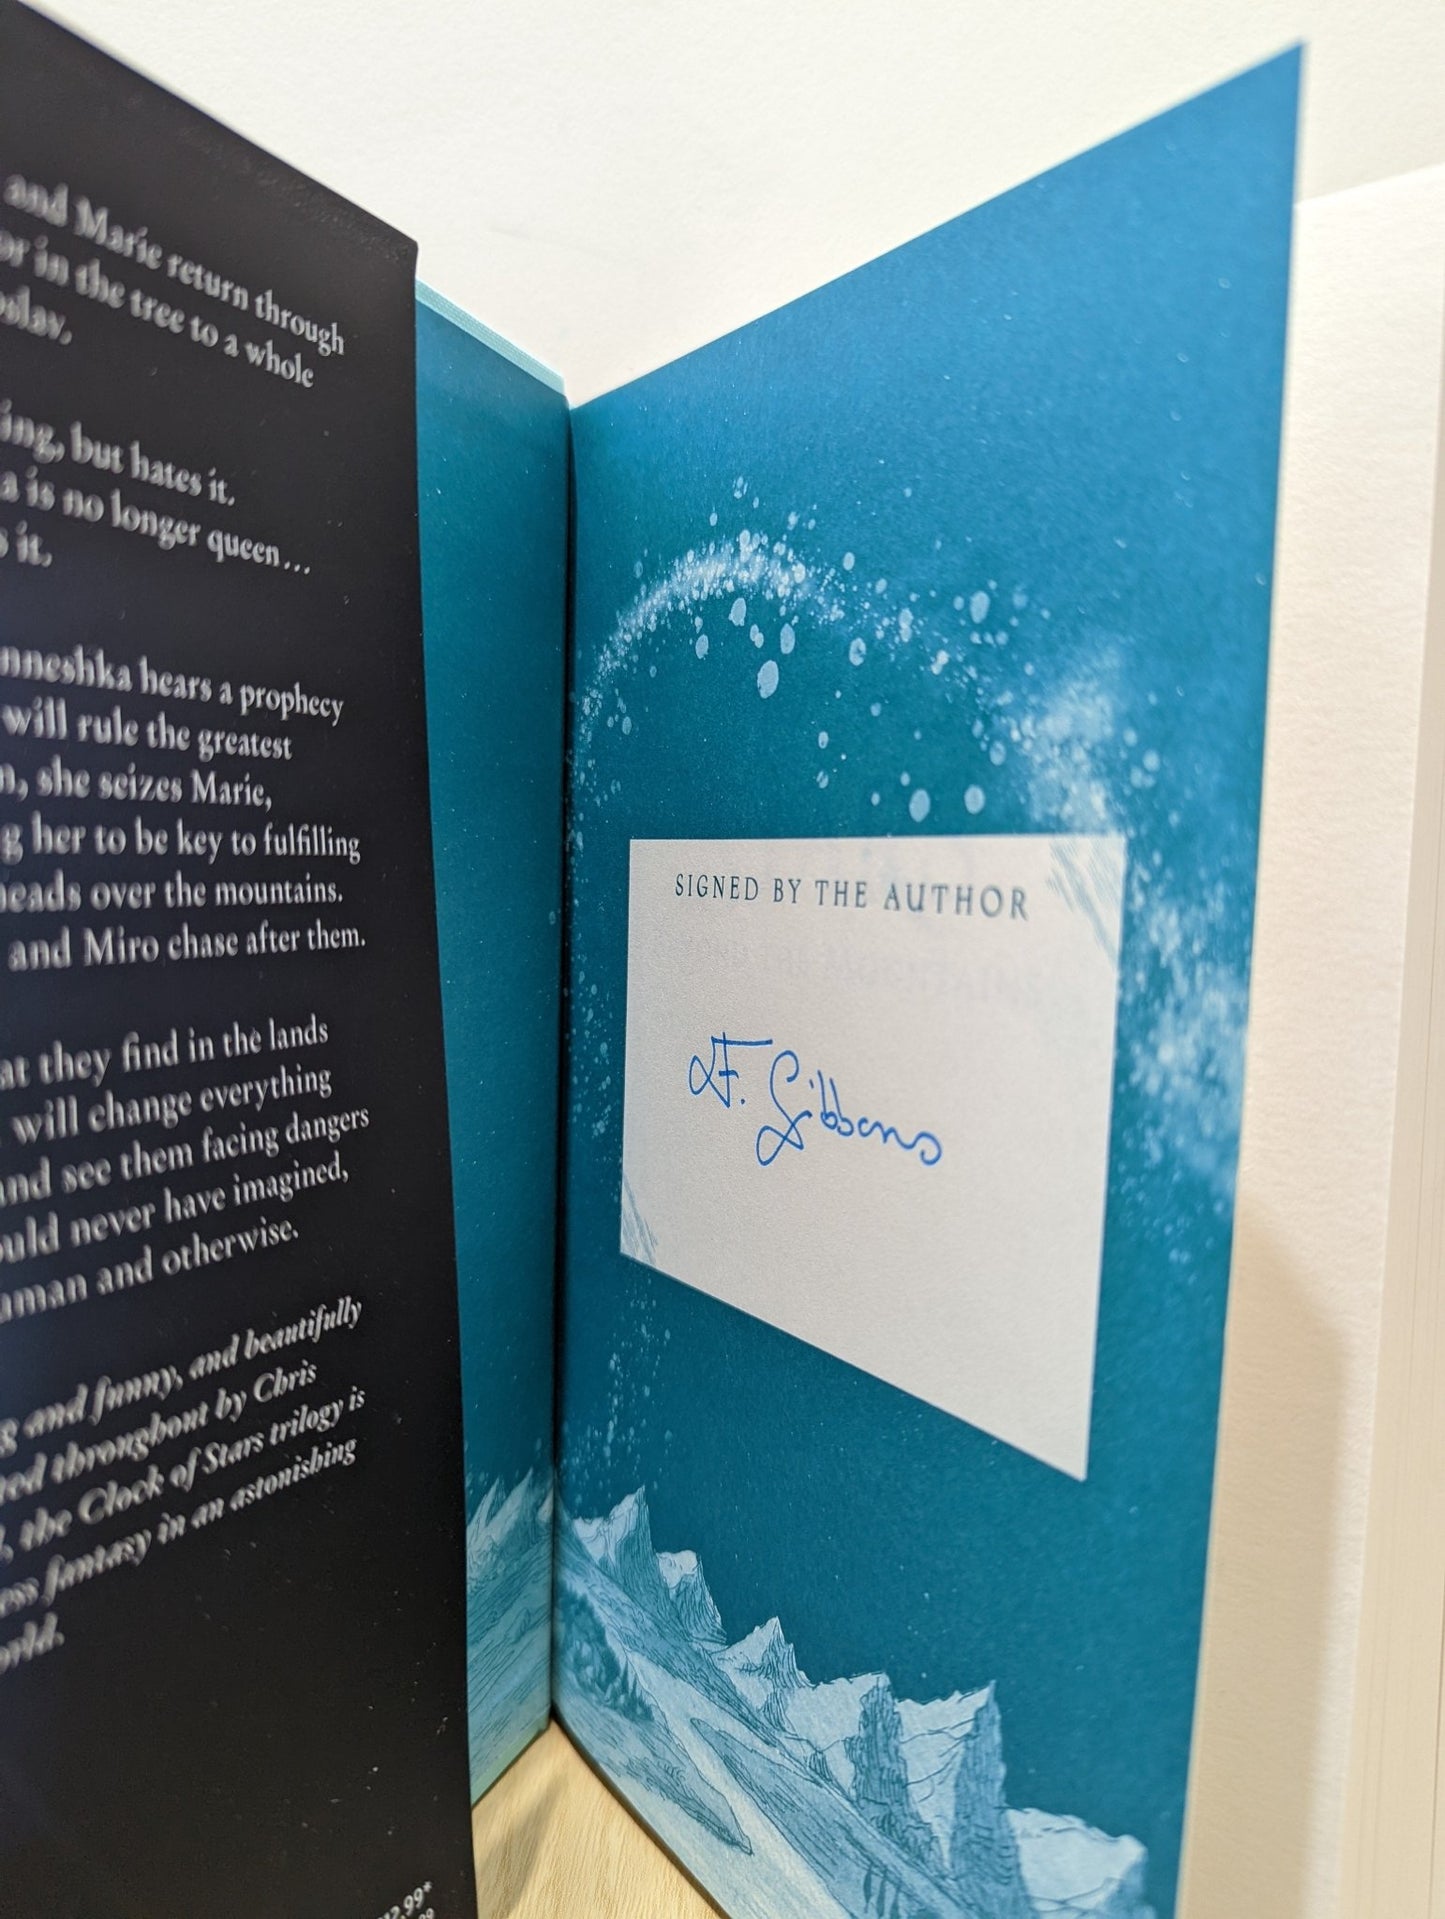 and Marie return through
or in the tree to a whole
but hates it.
a is no longer queen...
it,
hears a prophecy
will rule the greatest
she seizes Marie,
her to be key to fulfilling
over the mountains.
and Miro chase after them.
they find in the lands
will change everything
and see them facing dangers
never have imagined,
and otherwise.
and funny, and beautifully
throughout by Chris
the Clock of Stars trilogy is
fantasy in an astonishing
SIGNED BY THE AUTHOR
F. Gibbons